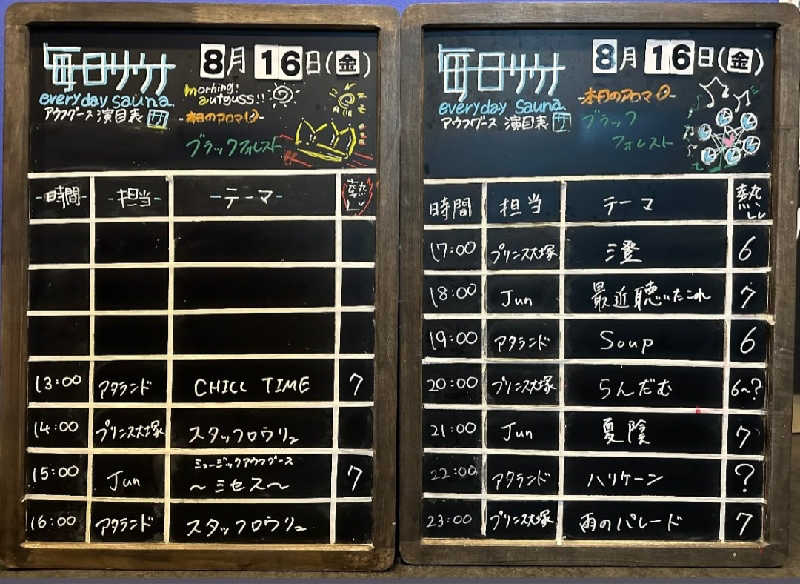 毎日サウナ 8月16日(金)
everyday sauna.
アウフグース 演目表
morning!
aufguss!!
-本日のアロマ-
ブラックフォレスト
-時間- -担当- -テーマ- 熱い
13:00 アタランド CHILL TIME 7
14:00 プリンス大塚 スタッフロウリュ
ミュージックアウフグース
15:00 Jun ～ミセス～ 7
16:00 アタランド スタッフロウリュ
毎日サウナ 8月16日(金)
everyday sauna.
アウフグース 演目表
-本日のアロマ-
ブラック
フォレスト
時間 担当 テーマ 熱い
17:00 プリンス大塚 澄 6
18:00 Jun 最近聴いたこれ 7
19:00 アタランド Soup 6
20:00 プリンス大塚 らんだむ 6~?
21:00 Jun 夏陰 7
22:00 アタランド ハリケーン ?
23:00 プリンス大塚 雨のパレード 7